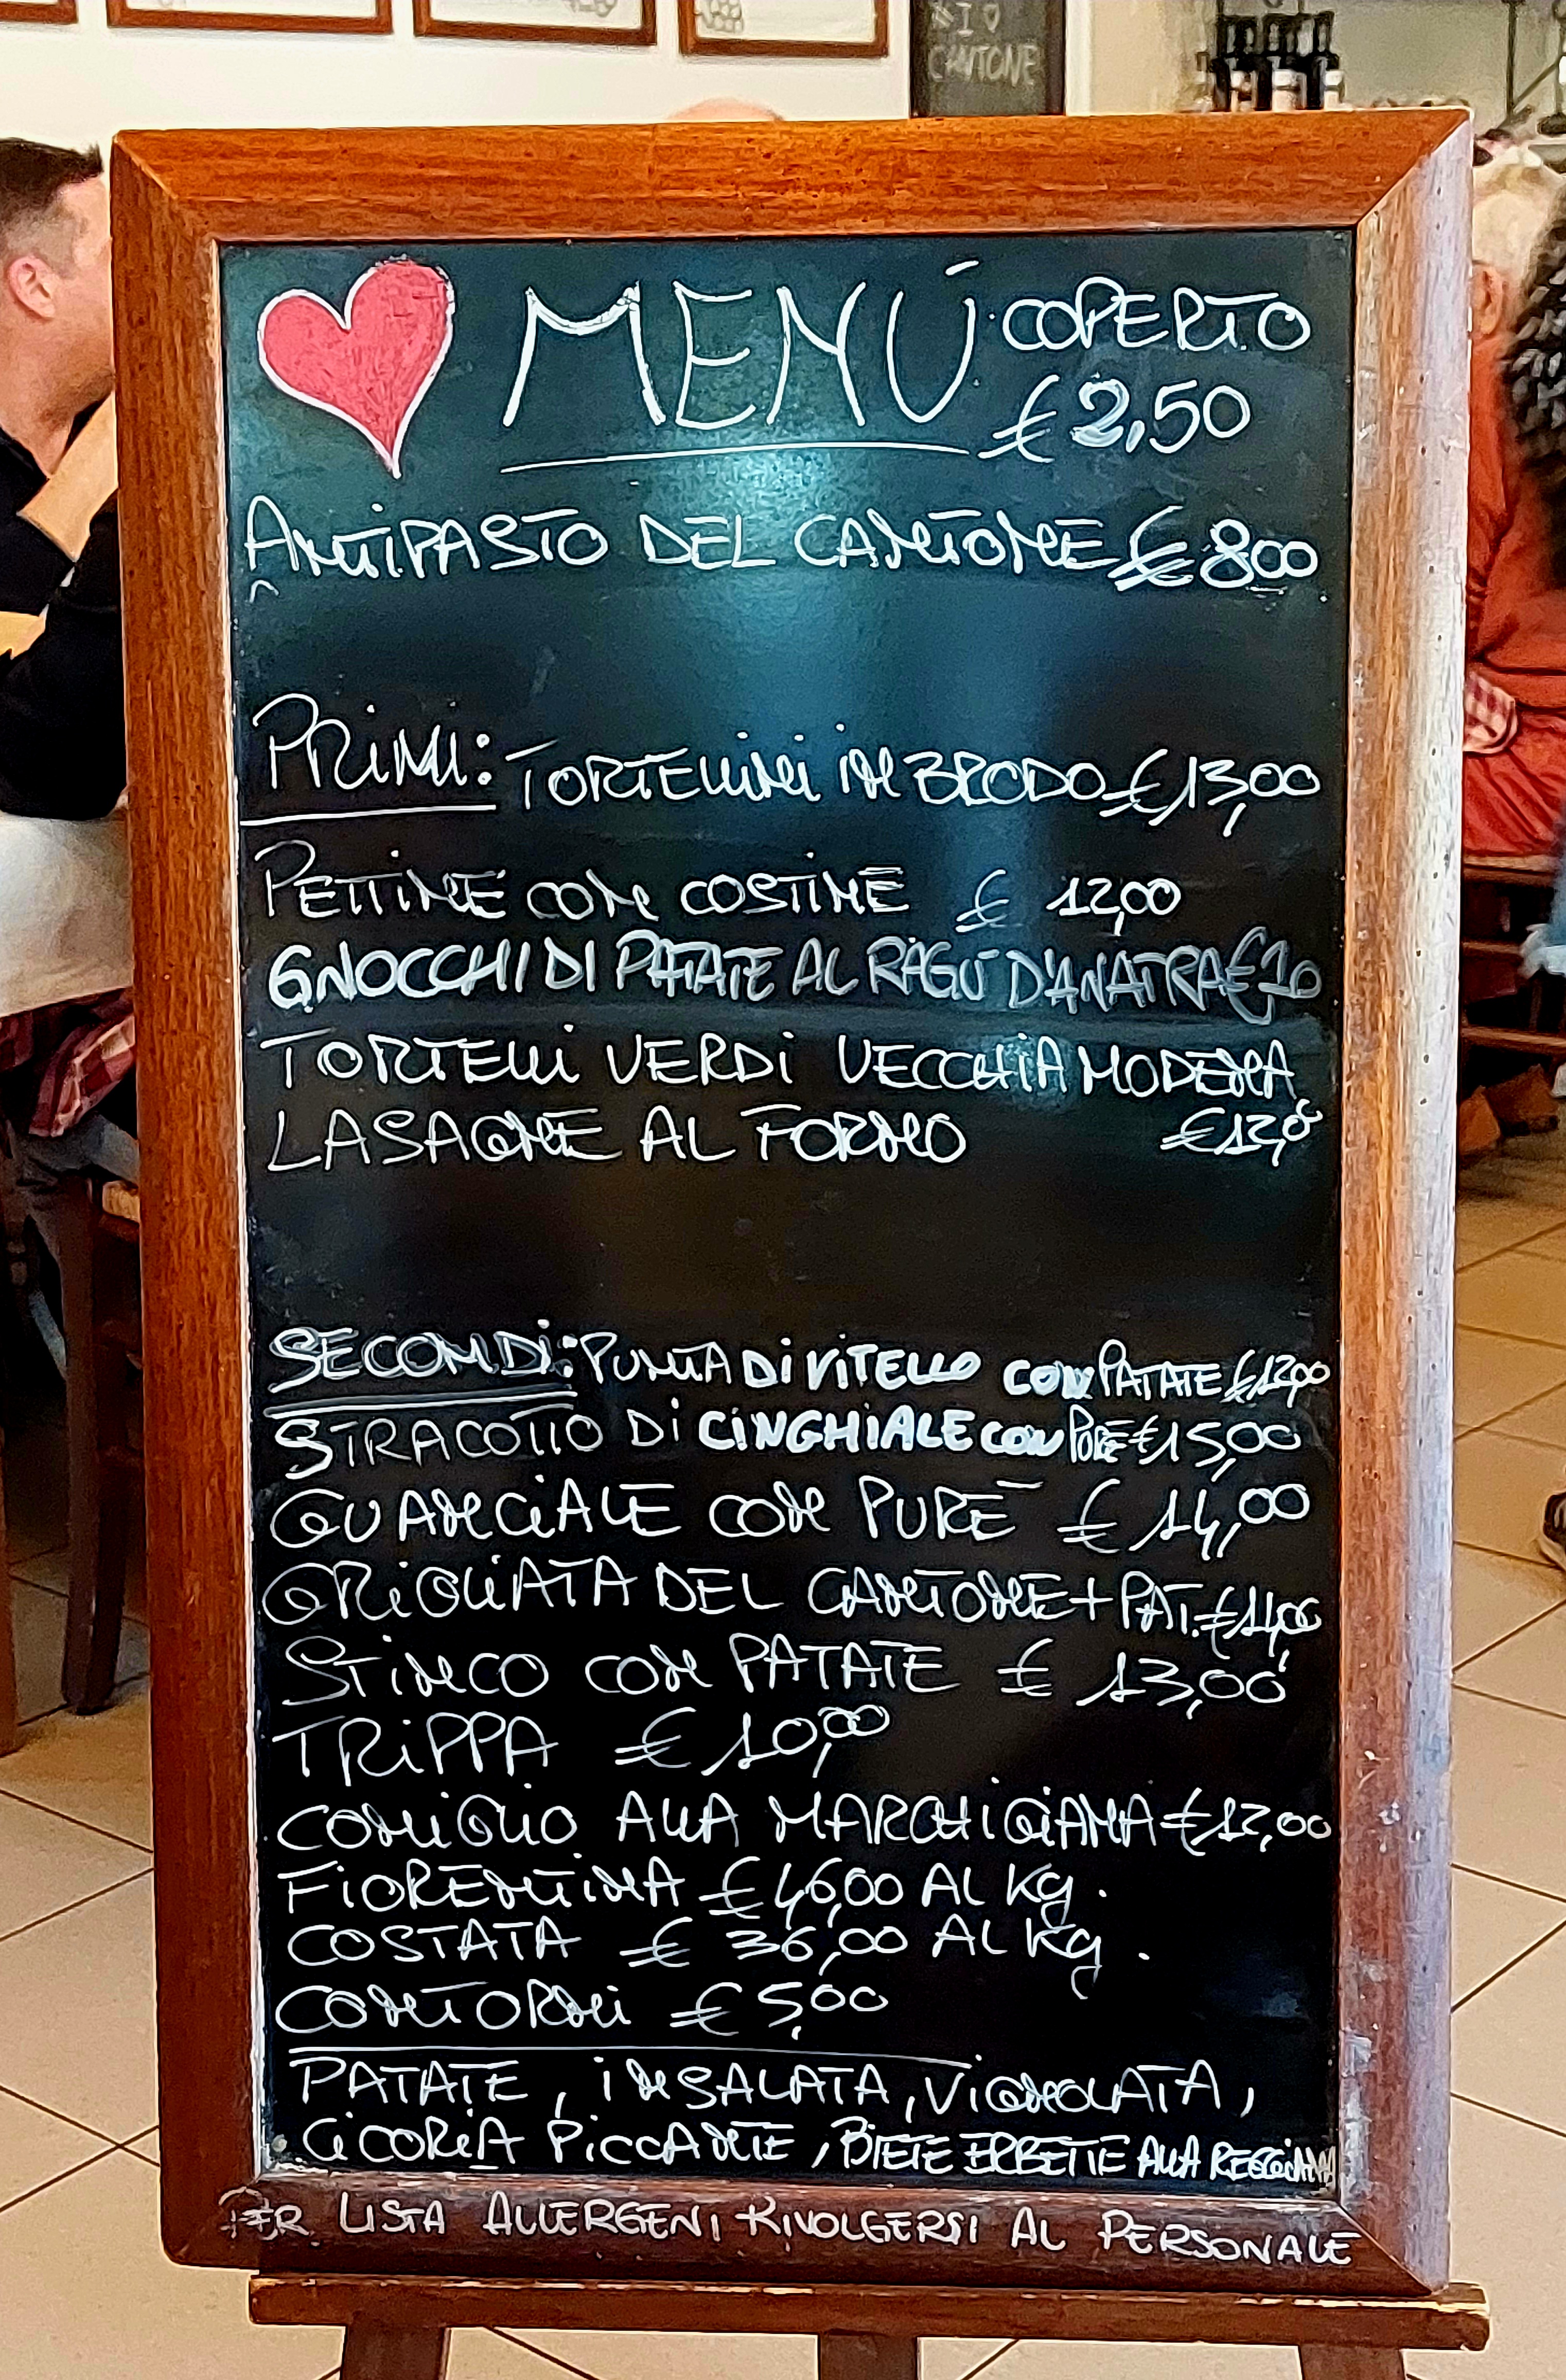 #I ♡
CANTONE
MENÚ COPERTO
€ 2,50
ANTIPASTO DEL CANTONE € 8,00
PRIMI: TORTELLINI IN BRODO € 13,00
PETTINE CON COSTINE € 12,00
GNOCCHI DI PATATE AL RAGÚ D'ANATRA € 10
TORTELLI VERDI VECCHIA MODENA
LASAGNE AL FORNO € 12,0
SECONDI: PUNTA DI VITELLO CON PATATE € 12,00
STRACOTTO DI CINGHIALE CON PURÈ € 15,00
GUANCIALE CON PURÈ € 14,00
GRIGLIATA DEL CANTONE + PAT. € 14,00
STINCO CON PATATE € 13,00
TRIPPA € 10,00
CONIGLIO ALLA MARCHIGIANA € 12,00
FIORENTINA € 46,00 AL Kg.
COSTATA € 36,00 AL Kg.
CONTORNI € 5,00
PATATE, INSALATA, VIGNOLATA,
CICORIA PICCANTE, BIETE ERBETTE ALLA REGGIANA
PER LISTA ALLERGENI RIVOLGERSI AL PERSONALE